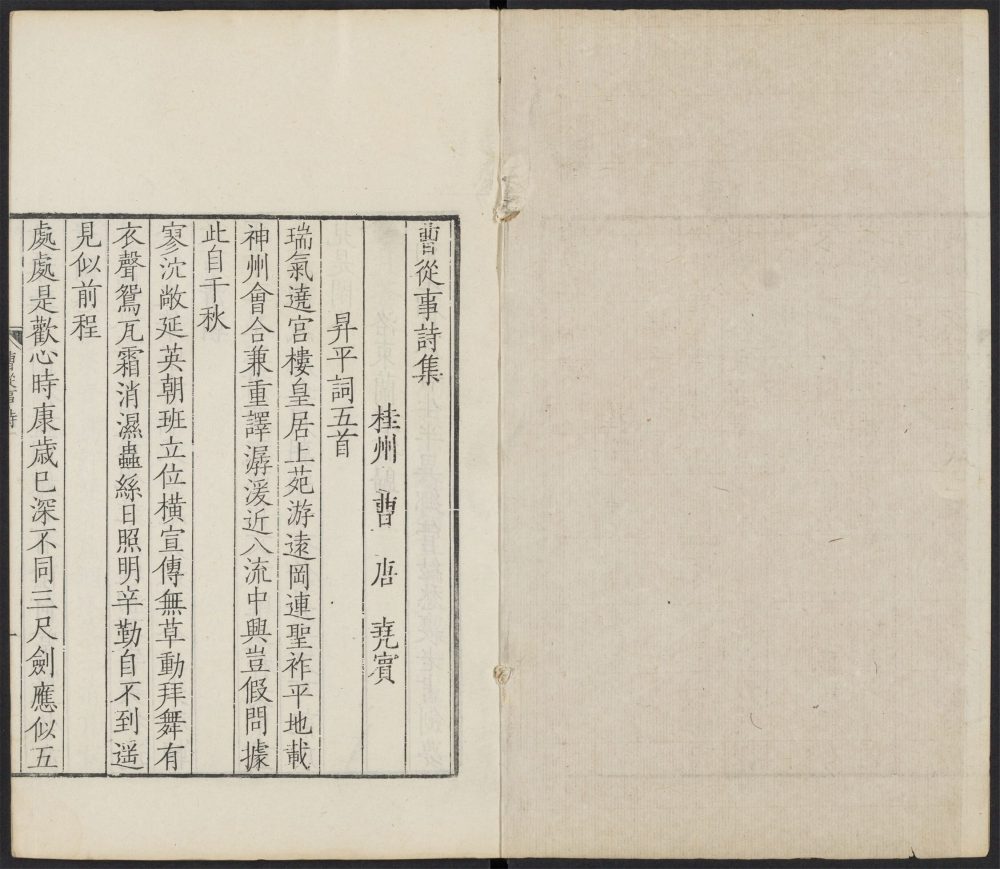 曹從事詩集
桂州曹唐堯賓
昇平詞五首
瑞氣遶宮樓皇居上苑游遠岡連聖祚平地載
神州會合兼重譯潺湲近八流中興豈假問據
此自千秋
寥沈敞延英朝班立位橫宣傳無草動拜舞有
衣聲鴛瓦霜消濕蟲絲日照明辛勤自不到遥
見似前程
處處是歡心時康歲已深不同三尺劍應似五
曹從事詩
一